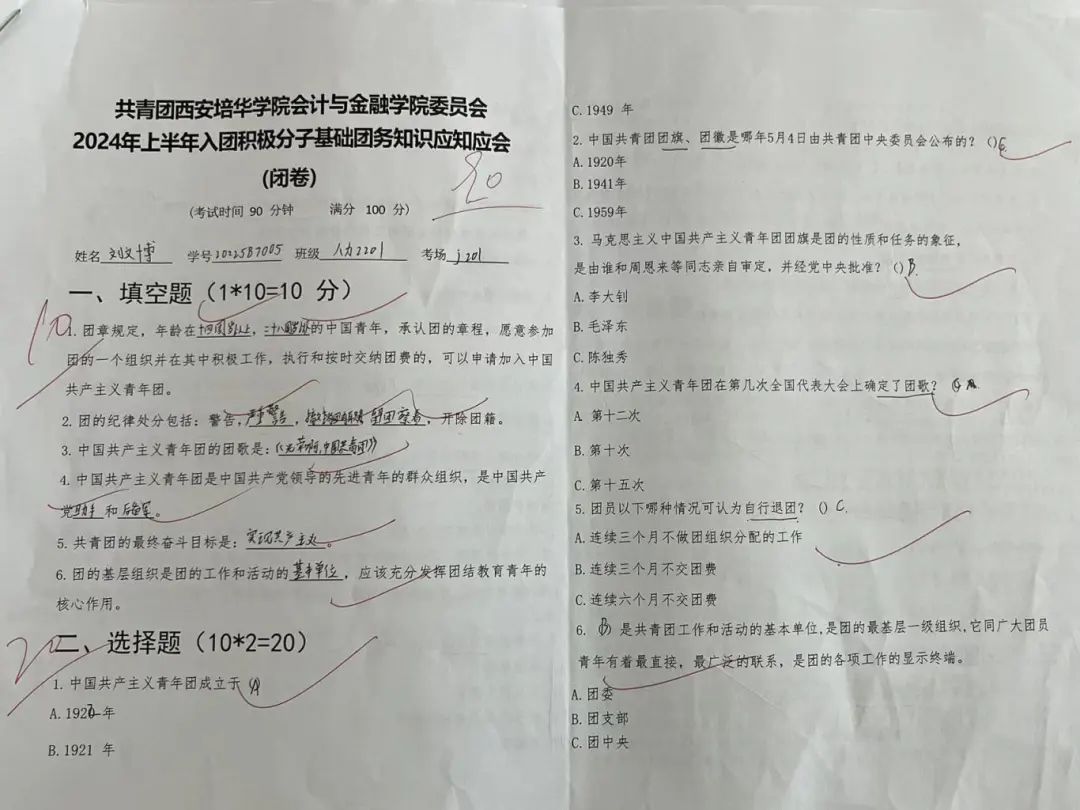 共青团西安培华学院会计与金融学院委员会
2024年上半年入团积极分子基础团务知识应知应会
(闭卷)
(考试时间 90 分钟 满分 100 分)
姓名 刘文博 学号 班级 人力2201 考场 j201
一、填空题（1*10=10 分）
10
1. 团章规定，年龄在十四周岁以上，二十八周岁以下的中国青年，承认团的章程，愿意参加
团的一个组织并在其中积极工作，执行和按时交纳团费的，可以申请加入中国
共产主义青年团。
2. 团的纪律处分包括：警告，严重警告，留团察看，开除团籍。
3. 中国共产主义青年团的团歌是：《光荣啊，中国共青团》
4. 中国共产主义青年团是中国共产党领导的先进青年的群众组织，是中国共产
党助手和后备军。
5. 共青团的最终奋斗目标是：实现共产主义。
6. 团的基层组织是团的工作和活动的基本单位，应该充分发挥团结教育青年的
核心作用。
20
二、选择题（10*2=20）
1. 中国共产主义青年团成立于（A
A. 1922 年
B. 1921 年
C. 1949 年
2. 中国共青团团旗、团徽是哪年5月4日由共青团中央委员会公布的？（）C
A. 1920年
B. 1941年
C. 1959年
3. 马克思主义中国共产主义青年团团旗是团的性质和任务的象征，
是由谁和周恩来等同志亲自审定，并经党中央批准？（）B
A. 李大钊
B. 毛泽东
C. 陈独秀
4. 中国共产主义青年团在第几次全国代表大会上确定了团歌？（） A
A 第十二次
B. 第十次
C. 第十五次
5. 团员以下哪种情况可认为自行退团？（）C
A. 连续三个月不做团组织分配的工作
B. 连续三个月不交团费
C. 连续六个月不交团费
6. （B）是共青团工作和活动的基本单位，是团的最基层一级组织，它同广大团员
青年有着最直接，最广泛的联系，是团的各项工作的显示终端。
A. 团委
B. 团支部
C. 团中央